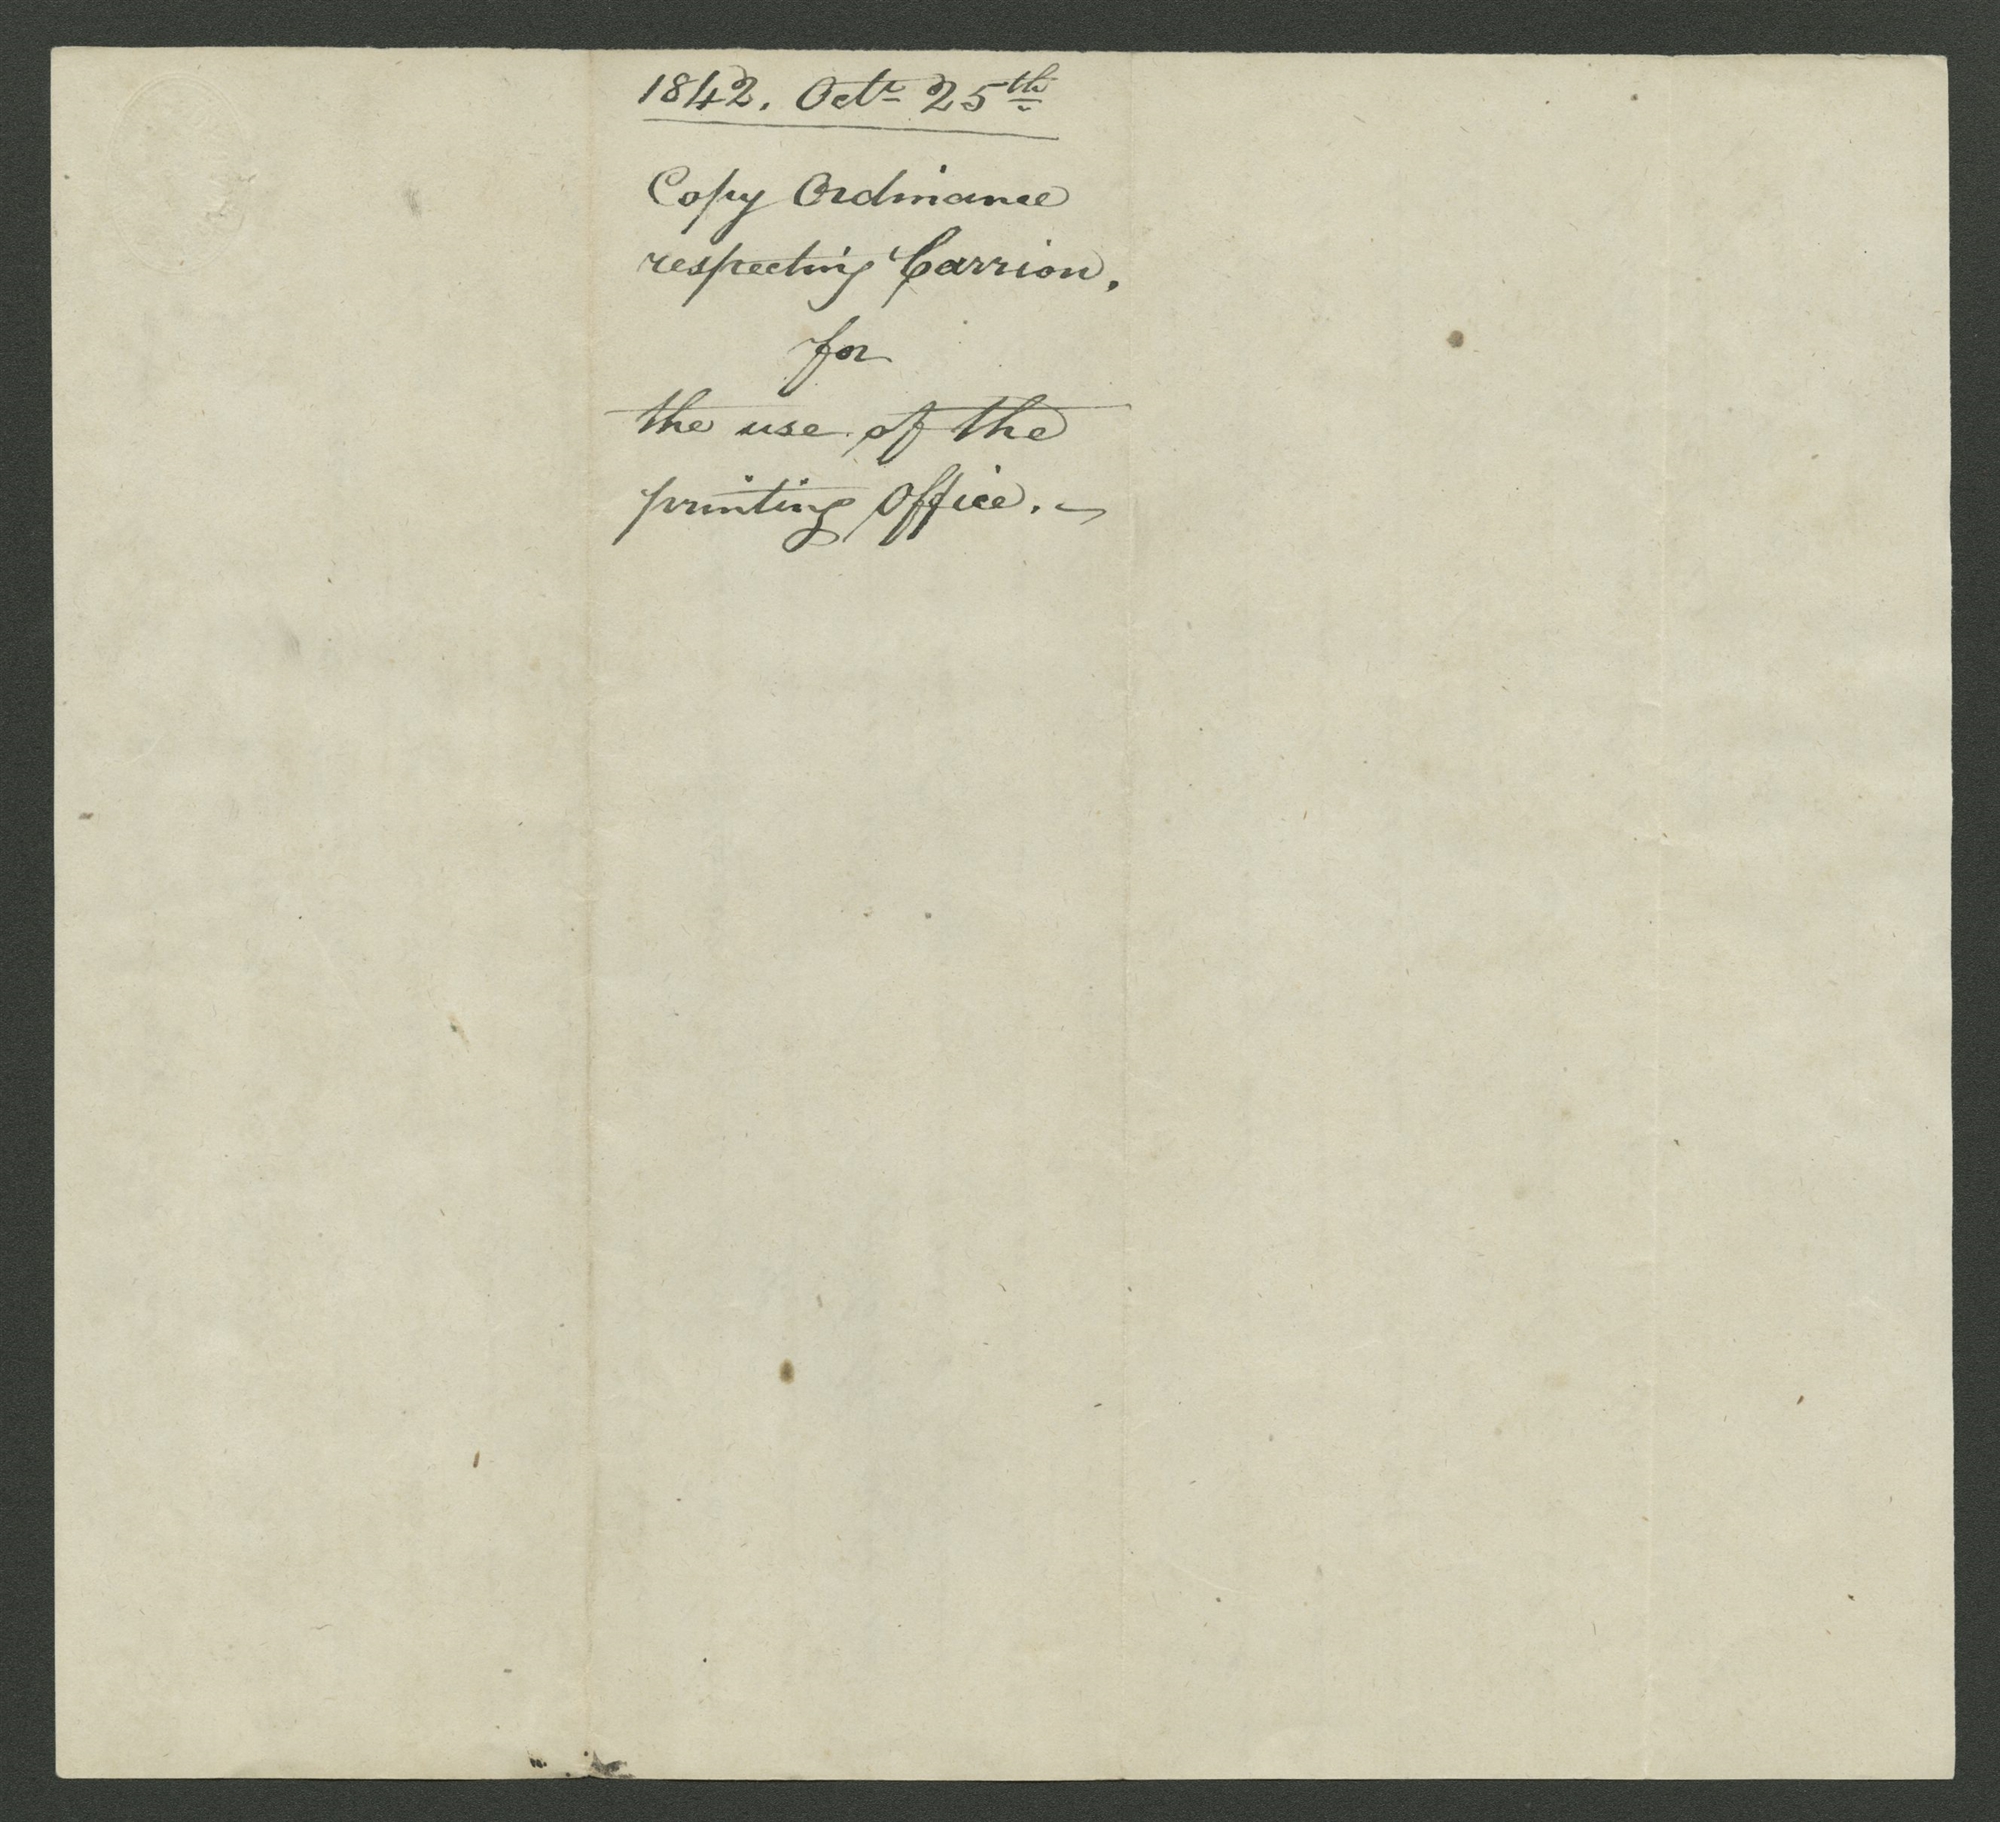 1842. Octr 25th
Copy Ordinance
respecting Carrion,
for
the use of the
printing Office.